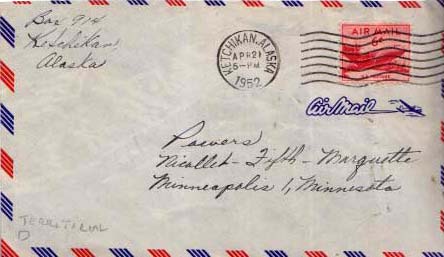 Box 914
Ketchikan,
Alaska
KETCHIKAN, ALASKA
APR 21
5-PM
1952
AIR MAIL
6¢
Air Mail
Powers
Nicollet - Fifth - Marquette
Minneapolis 1, Minnesota
TERRITIRIAL